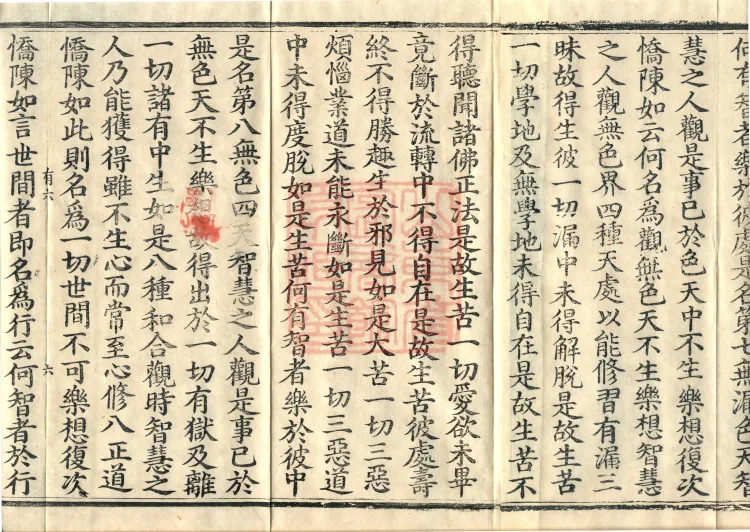 何有智者樂於彼處是名第七無漏色天智
慧之人觀是事已於色天中不生樂想復次
憍陳如云何名爲觀無色天不生樂想智慧
之人觀無色界四種天處以能修習有漏三
昧故得生彼一切漏中未得解脫是故生苦
一切學地及無學地未得自在是故生苦不
得聽聞諸佛正法是故生苦一切愛欲未畢
竟斷於流轉中不得自在是故生苦彼處壽
終不得勝趣生於邪見如是大苦一切三惡
煩惱業道未能永斷如是生苦一切三惡道
中未得度脫如是生苦何有智者樂於彼中
是名第八無色四天智慧之人觀是事已於
無色天不生樂想故得出於一切有獄及離
一切諸有中生如是八種和合觀時智慧之
人乃能獲得雖不生心而常至心修八正道
憍陳如此則名爲一切世間不可樂想復次
有六 六
憍陳如言世間者即名爲行云何智者於行